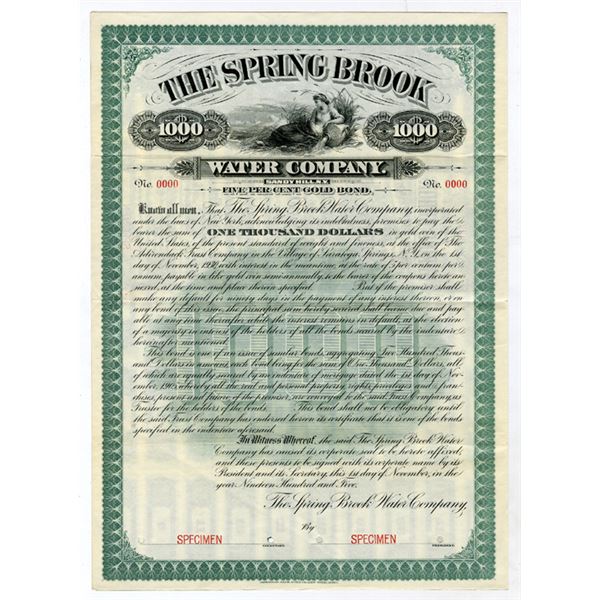 THE SPRING BROOK
1000 1000
WATER COMPANY.
SANDY HILL, N.Y.
No. 0000 No. 0000
FIVE PER CENT GOLD BOND,
Know all men, That The Spring Brook Water Company, incorporated
under the laws of New York, acknowledging its indebtedness, promises to pay the
bearer the sum of ONE THOUSAND DOLLARS in gold coin of the
United States, of the present standard of weight and fineness, at the office of The
Adirondack Trust Company in the Village of Saratoga Springs, N.Y. on the 1st
day of November, with interest in the meantime, at the rate of 5 per centum per
annum, payable in like gold coin semi-annually, to the bearer of the coupons hereto an-
nexed, at the time and place therein specified. But if the promiser shall
make any default for ninety days in the payment of any interest thereon, or on
any bond of this issue, the principal sum hereby secured shall become due and pay
able at any time thereafter while the interest remains in default, at the election
of a majority in interest of the holders of all the bonds secured by the indenture
hereinafter mentioned.
This bond is one of an issue of similar bonds, aggregating Two Hundred Thous-
and Dollars in amount, each bond being for the sum of One Thousand Dollars, all
of which are equally secured by an indenture of mortgage dated the 1st day of Nov-
ember, 1905 whereby all the real and personal property, rights, privileges and fran-
chises, present and future, of the promiser, are conveyed to the said Trust Company, as
Trustee for the holders of the bonds. This bond shall not be obligatory until
the said Trust Company has endorsed hereon its certificate that it is one of the bonds
specified in the indenture aforesaid.
In Witness Whereof, the said The Spring Brook Water
Company has caused its corporate seal to be hereto affixed,
and these presents to be signed with its corporate name by its
President and its Secretary, this 1st day of November, in
the year Nineteen Hundred and Five.
The Spring Brook Water Company,
By
SPECIMEN SPECIMEN
SECRETARY. PRESIDENT.